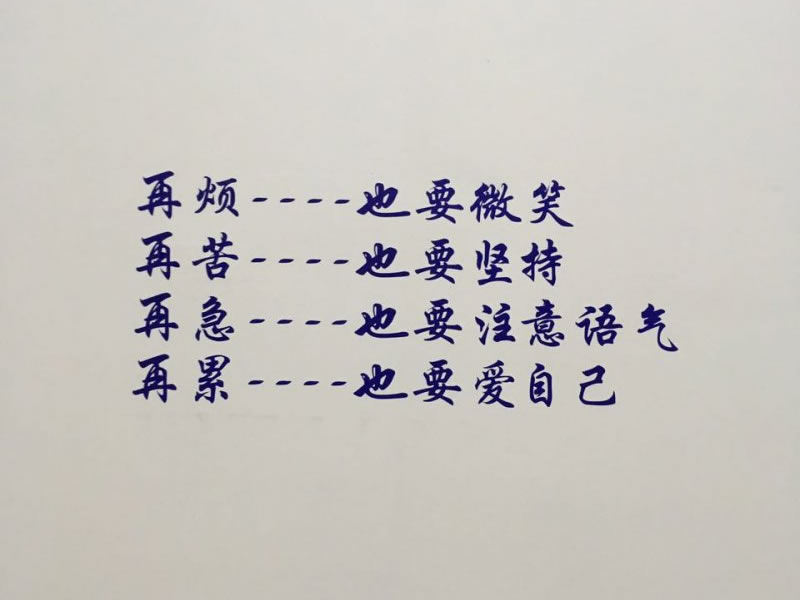 再烦----也要微笑
再苦----也要坚持
再急----也要注意语气
再累----也要爱自己